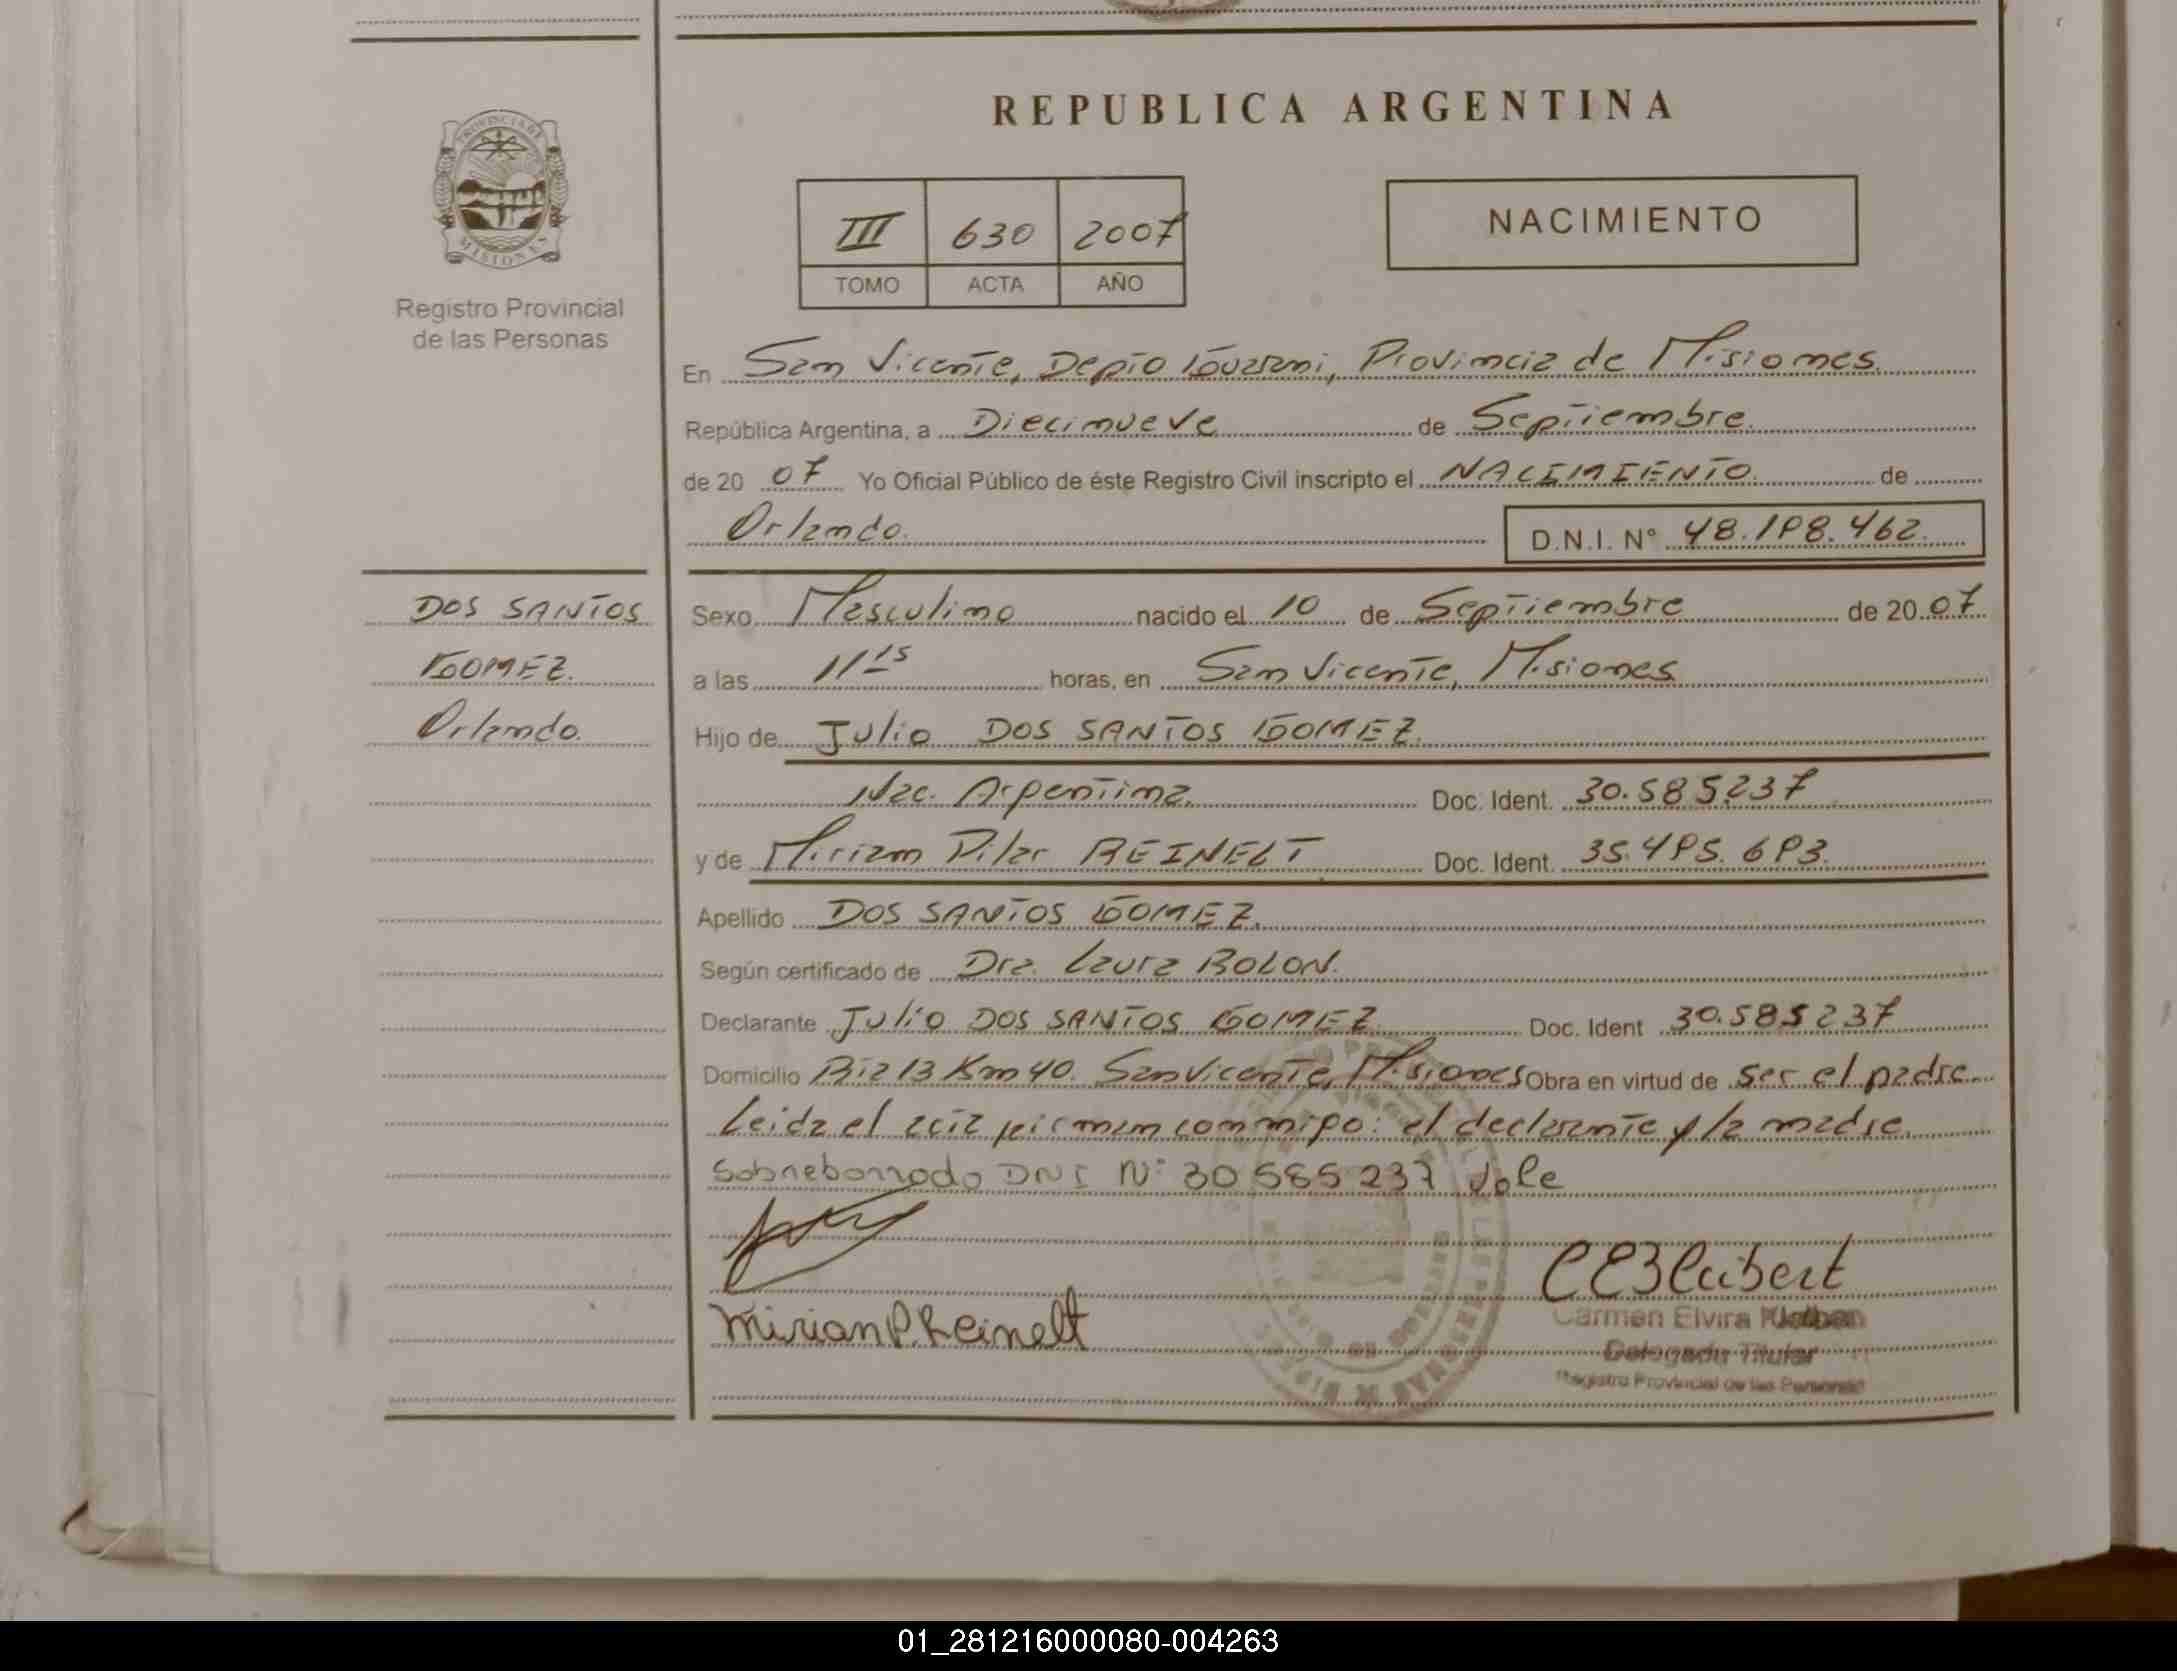 PROVINCIA DE
MISIONES
Registro Provincial
de las Personas
DOS SANTOS
GOMEZ.
Orlando.
REPUBLICA ARGENTINA
III 630 2007
TOMO ACTA AÑO
NACIMIENTO
En San Vicente, Depto Guarani, Provincia de Misiones.
República Argentina, a Diecinueve de Septiembre.
de 20 07 Yo Oficial Público de éste Registro Civil inscripto el NACIMIENTO. de
Orlando. D.N.I. Nº 48.198.462.
Sexo Masculino nacido el 10 de Septiembre de 20 07
a las 11 15 horas, en San Vicente, Misiones
Hijo de Julio DOS SANTOS GOMEZ.
Nac. Argentina. Doc. Ident. 30.585.237
y de Miriam Pilar REINELT Doc. Ident. 35.495.693.
Apellido DOS SANTOS GOMEZ.
Según certificado de Dra. Laura BOLON.
Declarante Julio DOS SANTOS GOMEZ Doc. Ident 30.585237
Domicilio Rta 13 Km 40. San Vicente, Misiones Obra en virtud de ser el padre
Leida el acta firman conmigo: el declarante y la madre.
Sobreborrado DNI Nº 30 585 237 Vale
Mirian P. Reinelt
Carmen Elvira
Delegada Titular
Registro Provincial de las Personas
01_281216000080-004263